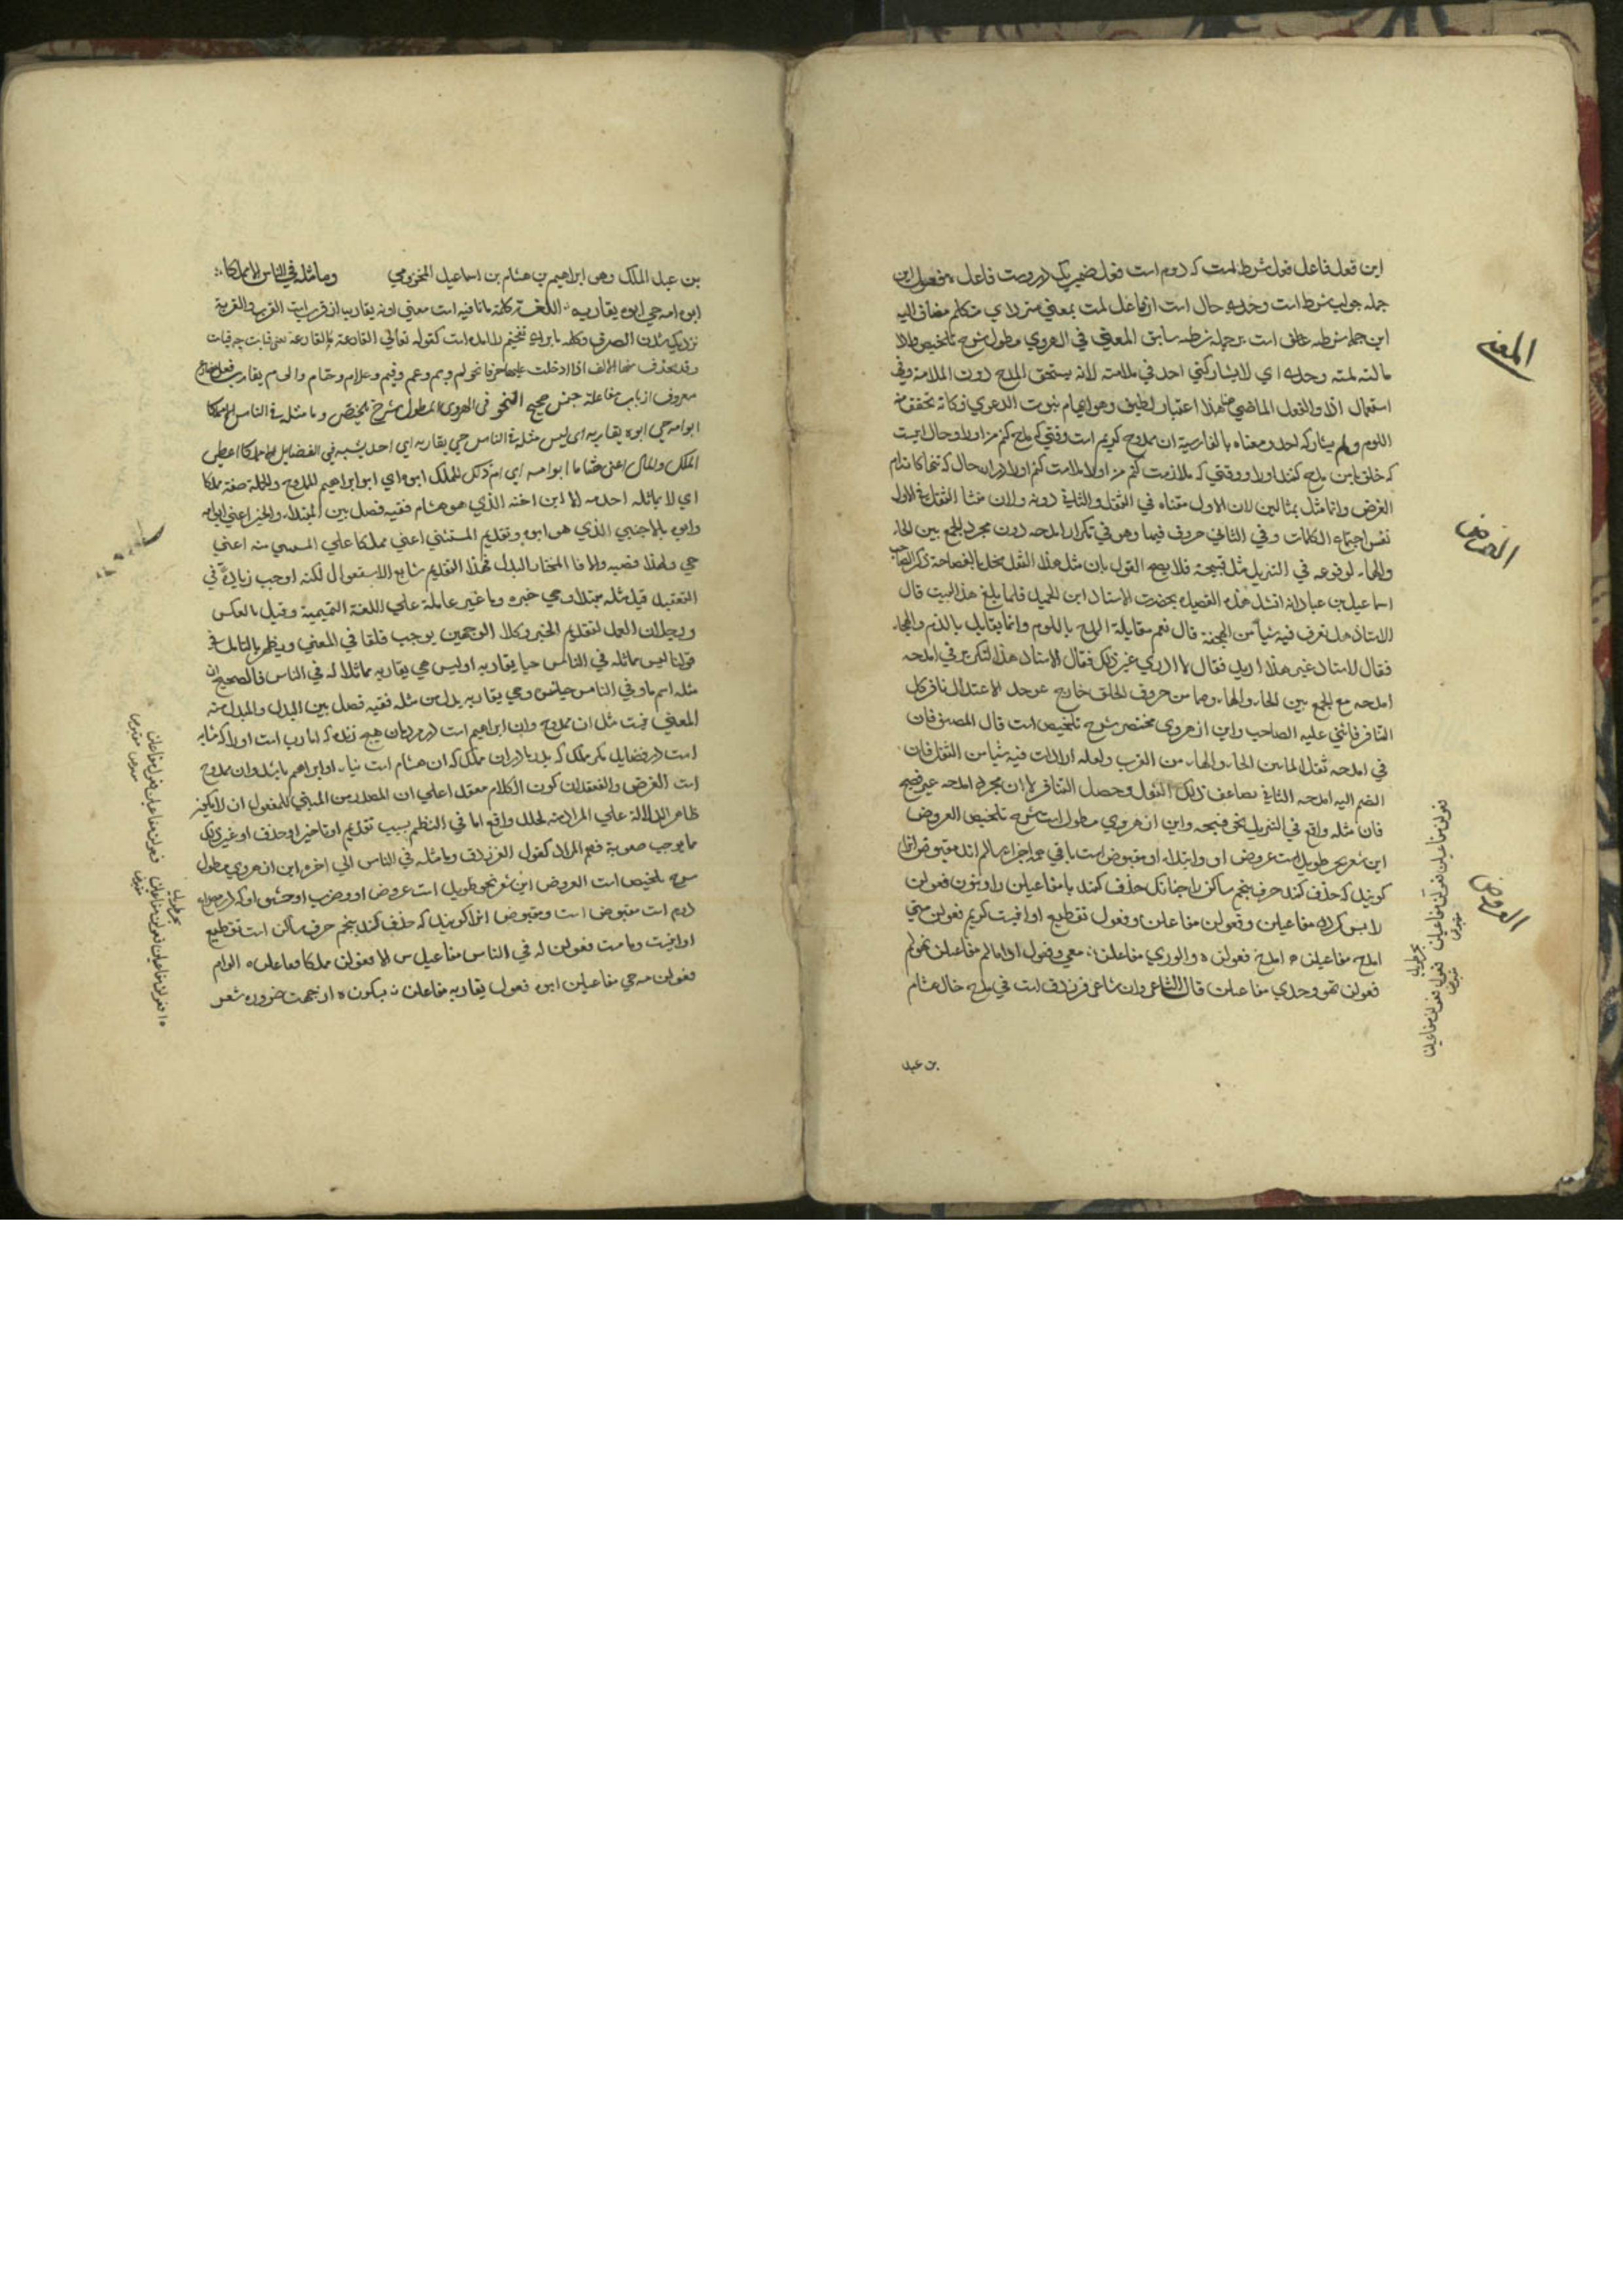 این فعل فاعل فعل شرط است که دوم است فعل ضمیریک در وست فاعل مفعول این
جمله جواب شرط است وحدی حال است از فاعل لمت بمعنی منردا ی متکلم مضاف الیه
این جمله شرطیه عطف است بر جمله شرطیه سابق المعنی في الهروي مطول شرح تلخیص واذا
ما لمته لمته وحدي اي لا یشارکني احد في ملامته لانه یستحق المدح دون الملامة وفي
استعمال اذا والفعل الماضي هنا هذا اعتبار لطیف وهو ایهام ثبوت الدعوی فکانه تحقق منه
اللوم ولم یشارکه احد ومعناه بالفارسیة ان ممدوح کریم است وقتی که مدح کنم من اورا وحال انست
که خلق با من مدح کنند اورا ووقتی که ملامت کنم من اورا ملامت کنم اورا در ان حال که تنها کاندام
الغرض وانما مثل بمثالین لان الاول متناه في الثقل والثاني دونه ولان منشا الثقل في الاول
نفس اجتماع الکلمات وفي الثاني حروف فیها وهو في تکرار امدحه دون مجرد الجمع بین الحاء
والهاء لوقوعه في التنزیل مثل فسبحه فلا یصح القول بان مثل هذا الثقل مخل بالفصاحة ذکر الصاحب
اسماعیل بن عباد انه انشد هذه القصیدة بحضرت الاستاد ابن العمید فلما بلغ هذا البیت قال
الاستاد هل تعرف فیه شیأ من الهجنة قال نعم مقابلة المدح باللوم وانما یقابل بالذم والهجاء
فقال الاستاد غیر هذا ارید فقال لا ادري غیر ذلک فقال الاستاد هذا التکریر في امدحه
امدحه مع الجمع بین الحاء والهاء وهما من حروف الحلق خارج عن حد الاعتدال نافر کل
التنافر فاثني علیه الصاحب واین از هروي مختصر شرح تلخیص است قال المصنف فان
في امدحه ثقلا لما بین الحاء والهاء من القرب ولعله اراد ان فیه شیأ من الثقل فان
انضم الیه امدحه الثاني تضاعف ذلک الثقل وحصل التنافر لا ان مجرد امدحه غیر فصیح
فان مثله واقع في التنزیل نحو فسبحه واین از هروي مطول است شرح تلخیص العروض
این شعر بحر طویل است عروض او وابتداء او مقبوض است باقی همه اجزاء سالم اند مقبوض انرا
کویند که حذف کنند حرف پنجم ساکن را چنانک حذف کنند یا مفاعیلن را ونون فعولن
را پس کردد مفاعیلن وفعولن مفاعلن وفعول تقطیع او اینست کریم فعولن متي
امدحه مفاعیلن امدحـ فعولن والوري مفاعلن معي وفعول اذا مالم مفاعیلن تهولم
فعولن تهو وحدي مفاعیلن قال الشاعر وان شاعر فرزدق است في مدح خال هشام
بن عبد
المعنی
الغرض
العروض
فعولن مفاعیلن فعولن مفاعیلن فعول فعولن مفاعیلن
مقبوض
بحر طویل
بن عبد الملک وهو ابراهیم بن هشام بن اسماعیل المخزومي وما مثله في الناس الا مملکا
ابو امه حي ابوه یقاربه اللغة کلمه ما نافیه است معنی او نه یقارب از قرب است القرب والقربة
نزدیک شدن الصرف وکلمه با برای تفخیم للمامده است کقوله تعالی القارعة ما القارعة
وقد یحذف منها الالف اذا دخلت علیها حرفا نحو لم وبم وعم وفیم وعلام وحتام والی م یقارب فعل مضارع
معروف از باب مفاعلة جنس صحیح النحو في الهروي المطول شرح تلخیص وما مثله في الناس الا مملکا
ابو امه حي ابوه یقاربه اي لیس مثله في الناس حي یقاربه اي احد یشبه في الفضایل الا مملکا اعطي
الملک والمال اعني هشاما ابو امه اي ام ذلک المملک ابوه اي ابو ابراهیم الممدوح والجملة صفة مملکا
اي لا یماثله احد منه الا ابن اخته الذي هو هشام ففیه فصل بین المبتداء والخبر اعني ابو امه
وابوه بالاجنبي الذي هو ابوه وتقدیم المستثني اعني مملکا علي المستثني منه اعني
حي ولهذا نصبه والا فا المختار البدل فهذا التقدیم شایع الاستعمال لکنه اوجب زیادة في
التعقید قیل مثله مبتداء وحي خبره وما غیر عاملة علي اللغة التمیمیة وقیل بالعکس
وبطلان العمل لتقدیم الخبر وکلا الوجهین یوجب قلقا في المعني ویظهر بالتامل في
قولنا لیس مماثله في الناس حیا یقاربه او لیس حي یقاربه مماثلا له في الناس فالصحیح ان
مثله اسم ما وفي الناس خبره وحي یقاربه بدل من مثله ففیه فصل بین البدل والمبدل منه
المعني نیست مثل ان ممدوح وان ابراهیم است در مردمان هیچ زنده که
است در فضایل مکر ملک که پدر مادر ان ملک که ان هشام است او ابراهیم باشد وان ممدوح
است الغرض والتعقید ان کون الکلام معقدا علي ان المصدر من المبني للمفعول ان لا یکون
ظاهر الدلالة علي المراد منه لخلل واقع اما في النظم بسبب تقدیم او تاخیر او حذف او غیر ذلک
مما یوجب صعوبة فهم المراد کقول الفرزدق وما مثله في الناس الي اخره این از هروي مطول
شرح تلخیص است العروض این شعر نحو طویل است عروض او وضرب او وحشو او که در
دوم است مقبوض است ومقبوض انرا کویند که حذف کنند پنجم حرف ساکن است تقطیع
او اینست وما مت فعولن له في الناس مفاعیلن س الا فعولن مملکا مفاعلن ابو ام
فعولن مه حي مفاعیلن ابوه فعول یقاربه مفاعلن بسکون ه از جهت ضرورة شعر
بحر طویل